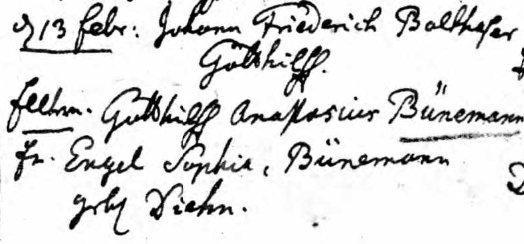 d 13 Febr: Johann Friederich Balthaser
Gotthilff.
Eltern. Gotthilff Anastasius Bünemann
Fr. Engel Sophia, Bünemann
geb Diehn.